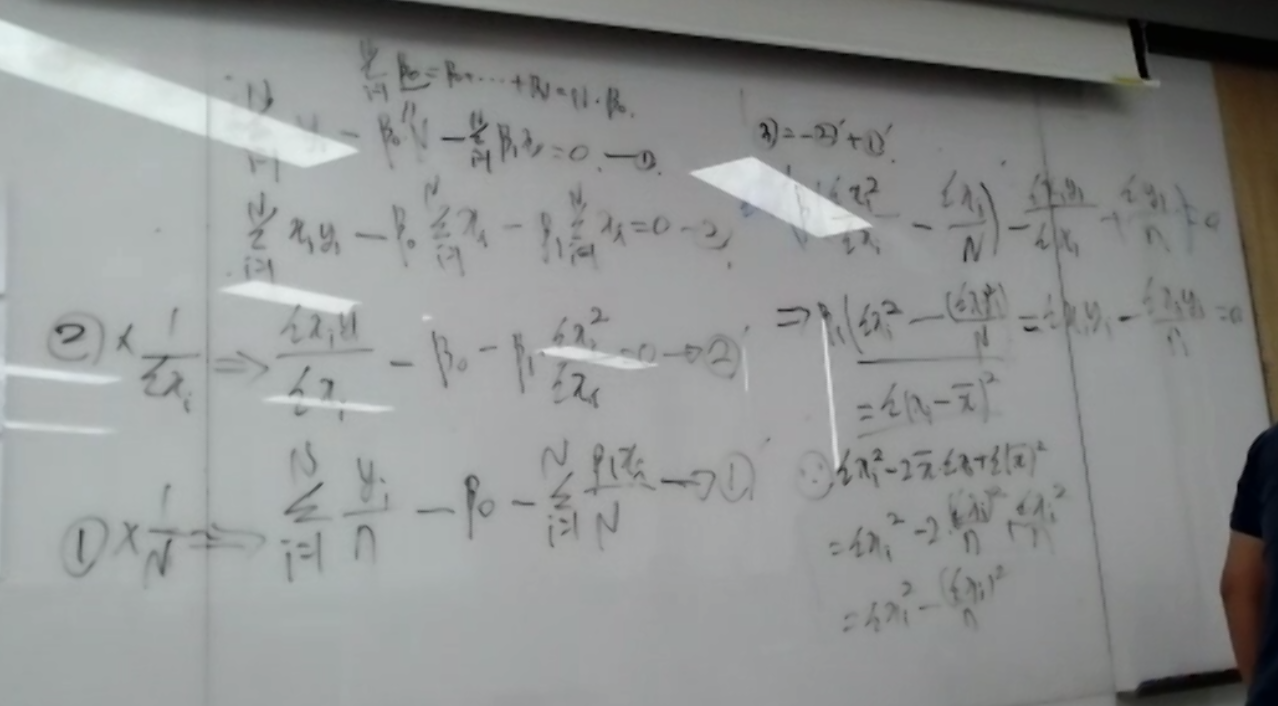 \sum_{i=1}^{N} β_0 = β_0 + ···· + β_0 = N·β_0.
\sum_{i=1}^{N} y_i - β_0 N - \sum_{i=1}^{N} β_1 x_i = 0 —①
\sum_{i=1}^{N} x_i y_i - β_0 \sum_{i=1}^{N} x_i - β_1 \sum_{i=1}^{N} x_i = 0 —②
② × \frac{1}{Σx_i} ⇒ \frac{Σx_i y_i}{Σx_i} - β_0 - β_1 \frac{Σx_i^2}{Σx_i} = 0 → ②'
① × \frac{1}{N} ⇒ \sum_{i=1}^{N} \frac{y_i}{n} - β_0 - \sum_{i=1}^{N} \frac{β_1 x_i}{N} → ①'
3) = -②' + ①'
\frac{Σx_i^2}{Σx_i} - \frac{Σx_i}{N}) - \frac{Σx_i y_i}{Σx_i} + \frac{Σy_i}{n} = 0
⇒ β_1 (Σx_i^2 - \frac{}{N}) = Σx_i y_i - \frac{Σx_i y_i}{n} = 0
= Σ(x_i - \bar{x})^2
∵ Σx_i^2 - 2\bar{x}·Σx_i + Σ(\bar{x})^2
= Σx_i^2 - 2 \frac{(Σx_i)^2}{n} + \frac{Σx_i^2}{n}
= Σx_i^2 - \frac{(Σx_i)^2}{n}